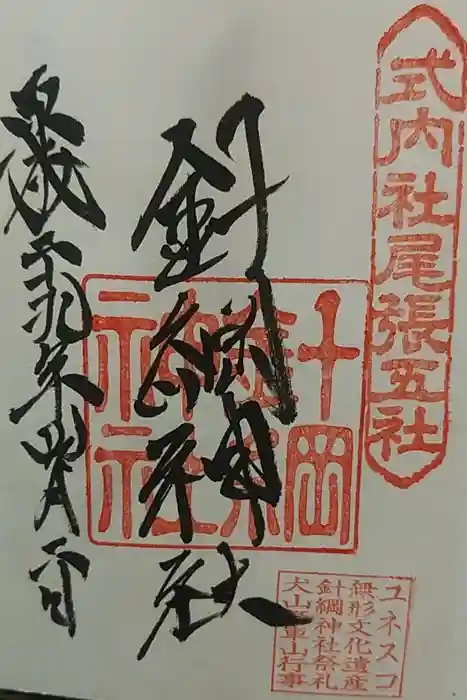 式内社尾張五社
針綱神社
針綱
神社
年四月
ユネスコ
無形文化遺産
針綱神社祭礼
犬山車山行事